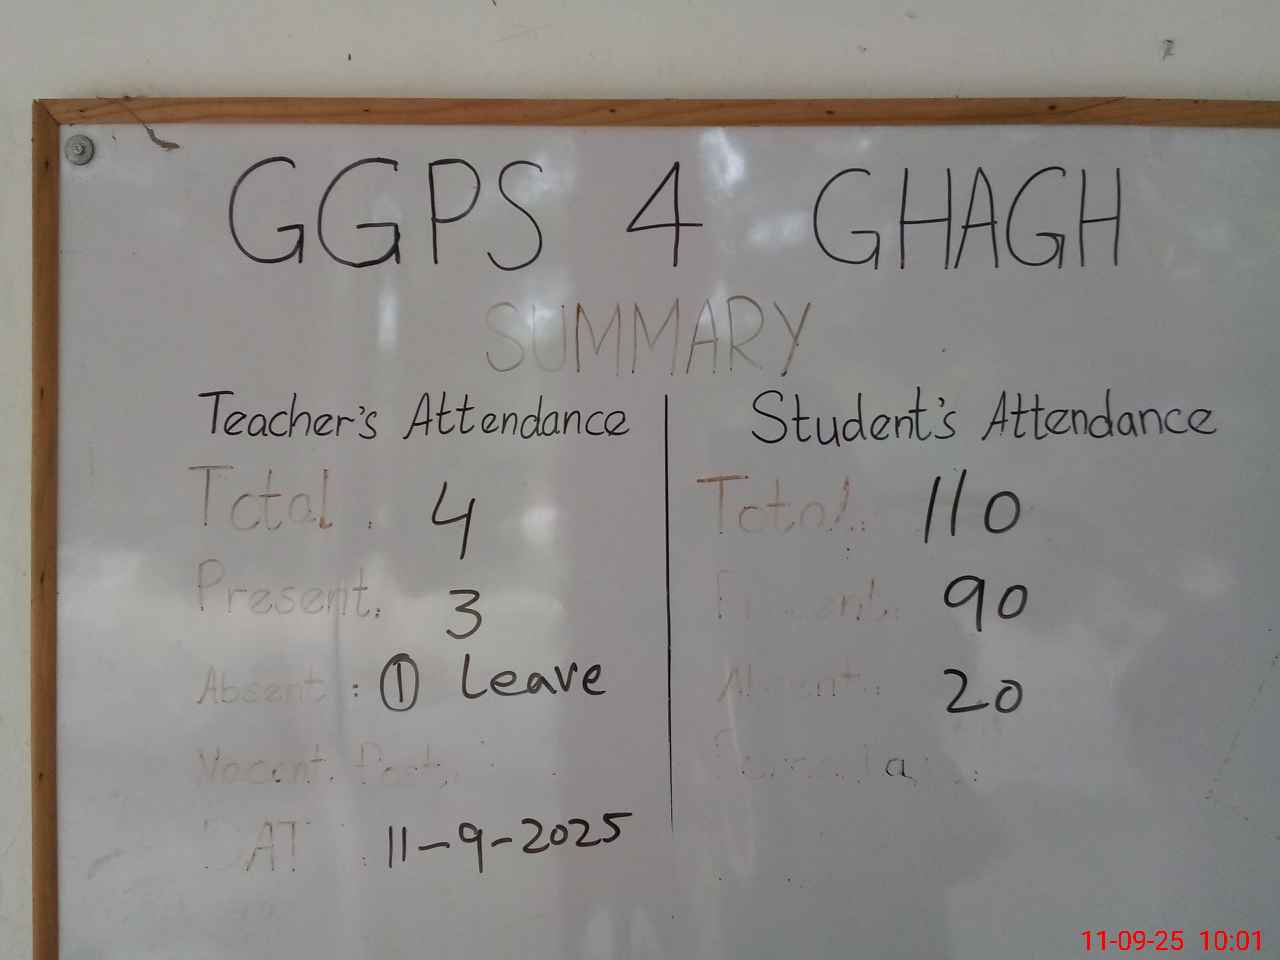 GGPS 4 GHAGH
SUMMARY
Teacher's Attendance
Total : 4
Present: 3
Absent : ① Leave
Vacant Post:
DAT : 11-9-2025
Student's Attendance
Total: 110
Present: 90
Absent: 20
11-09-25 10:01